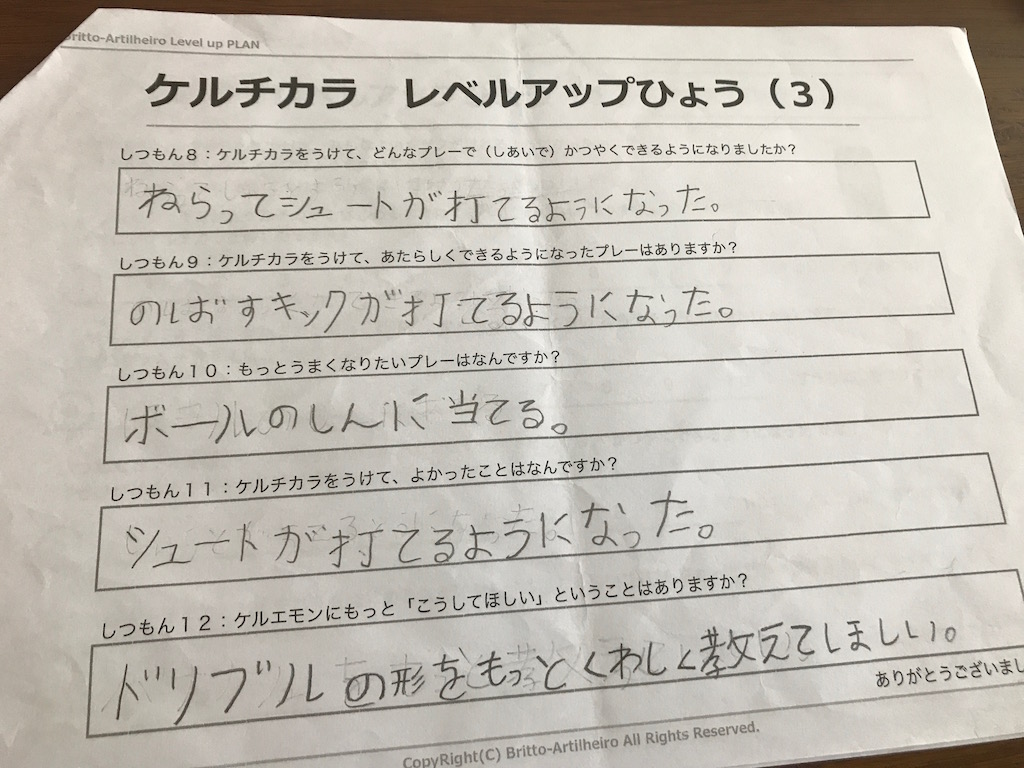 Britto-Artilheiro Level up PLAN
ケルチカラ　レベルアップひょう（３）
しつもん８：ケルチカラをうけて、どんなプレーで（しあいで）かつやくできるようになりましたか？
ねらってシュートが打てるようになった。
しつもん９：ケルチカラをうけて、あたらしくできるようになったプレーはありますか？
のばすキックが打てるようになった。
しつもん１０：もっとうまくなりたいプレーはなんですか？
ボールのしんに当てる。
しつもん１１：ケルチカラをうけて、よかったことはなんですか？
シュートが打てるようになった。
しつもん１２：ケルエモンにもっと「こうしてほしい」ということはありますか？
ドリブルの形をもっとくわしく教えてほしい。
ありがとうございまし
CopyRight(C) Britto-Artilheiro All Rights Reserved.